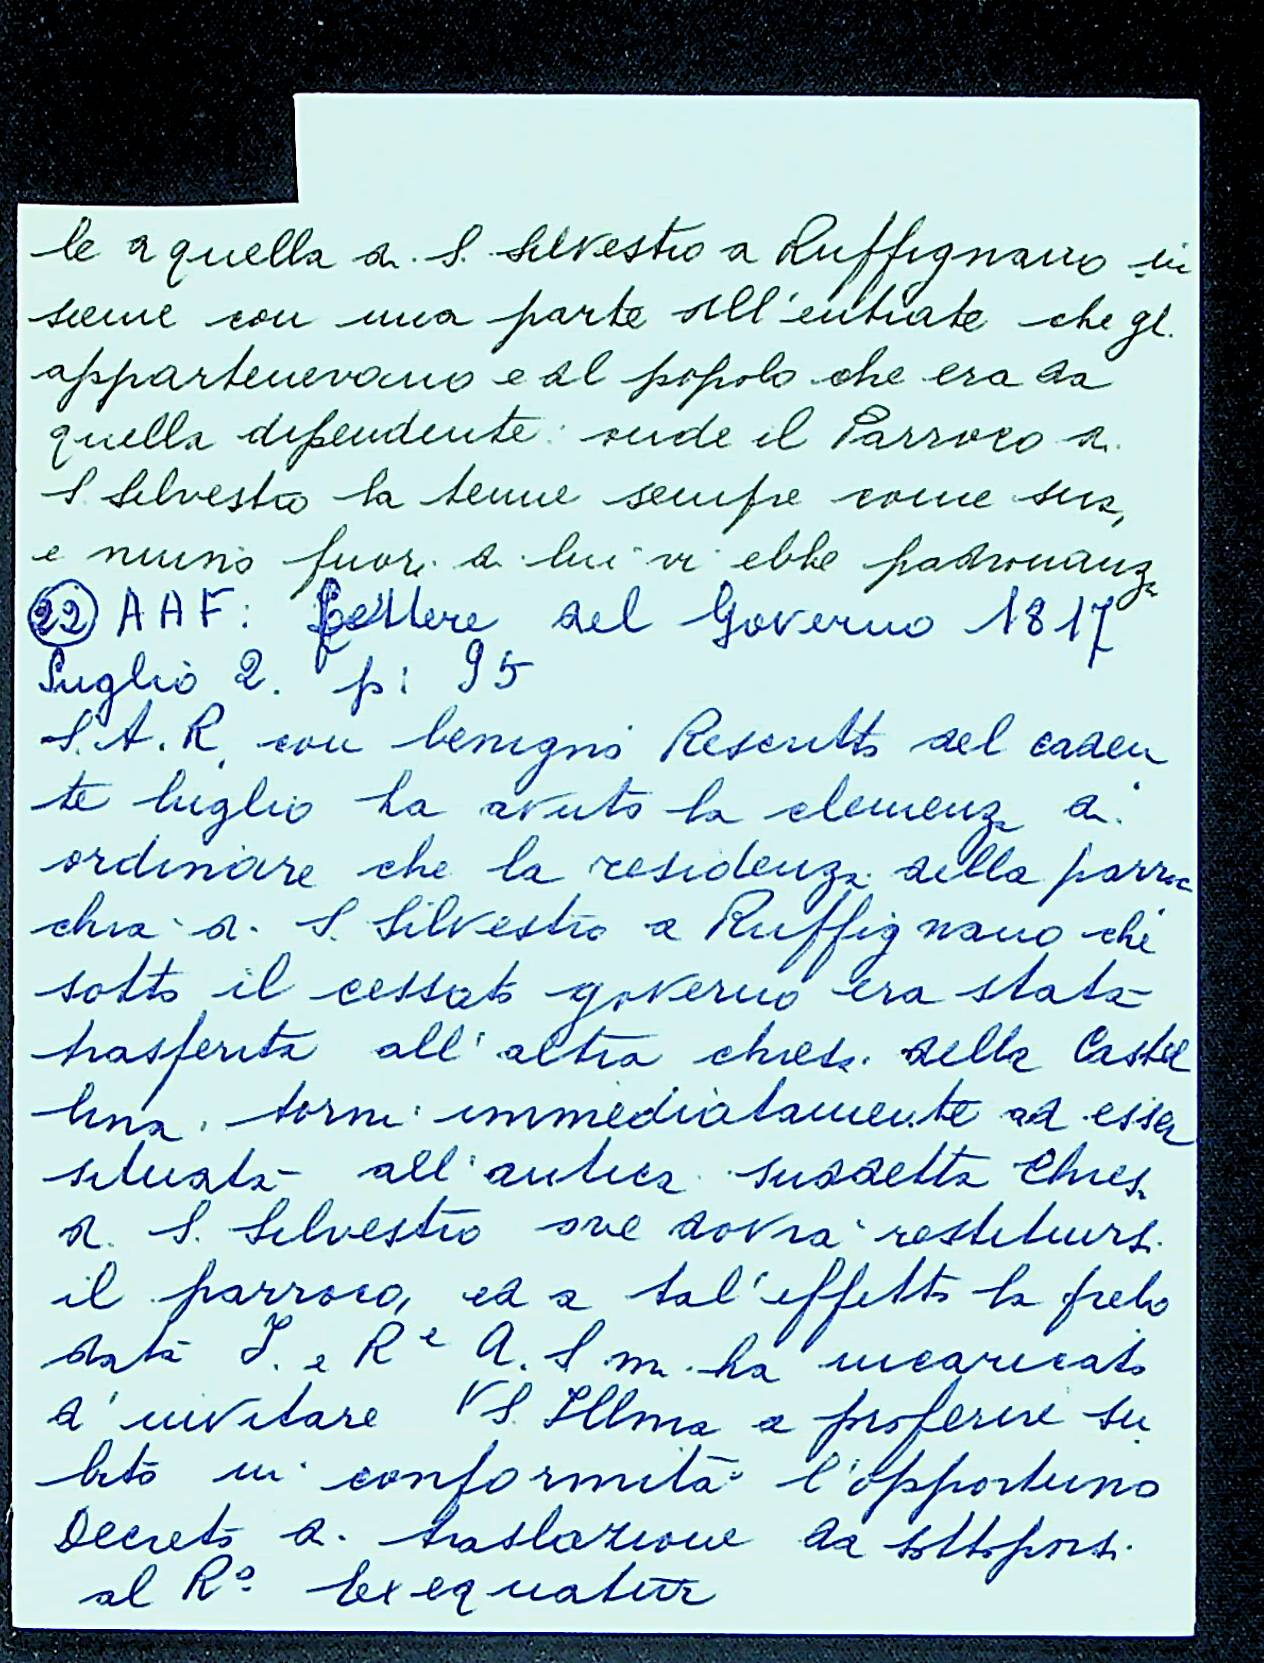 le a quella di S. Silvestro a Ruffignano in
sieme con una parte dell'entrate che gl.
appartenevano e al popolo che era da
quella dipendente: onde il Parroco di
S Silvestro la tenne sempre come sua,
e niuno fuori di lui vi ebbe padronanza
22 AAF: Lettere del Governo 1817
Luglio 2. p: 95
S. A. R. con benigno Rescritto del caden
te luglio ha avuto la clemenza di
ordinare che la residenza della parroc
chia di S. Silvestro a Ruffignano che
sotto il cessato governo era stata
trasferita all'altra chiesa della Castel
lina, torni immediatamente ad esser
situata all'antica suddetta Chiesa
di S. Silvestro ove dovrà restituirsi
il parroco, ed a tal'effetto la prelo
data I. e R e A. S m. ha incaricato
d'invitare VS. Illma a proferire su
bito in conformità l'opportuno
Decreto di traslazione da sottoporsi
al Rº Exequatur